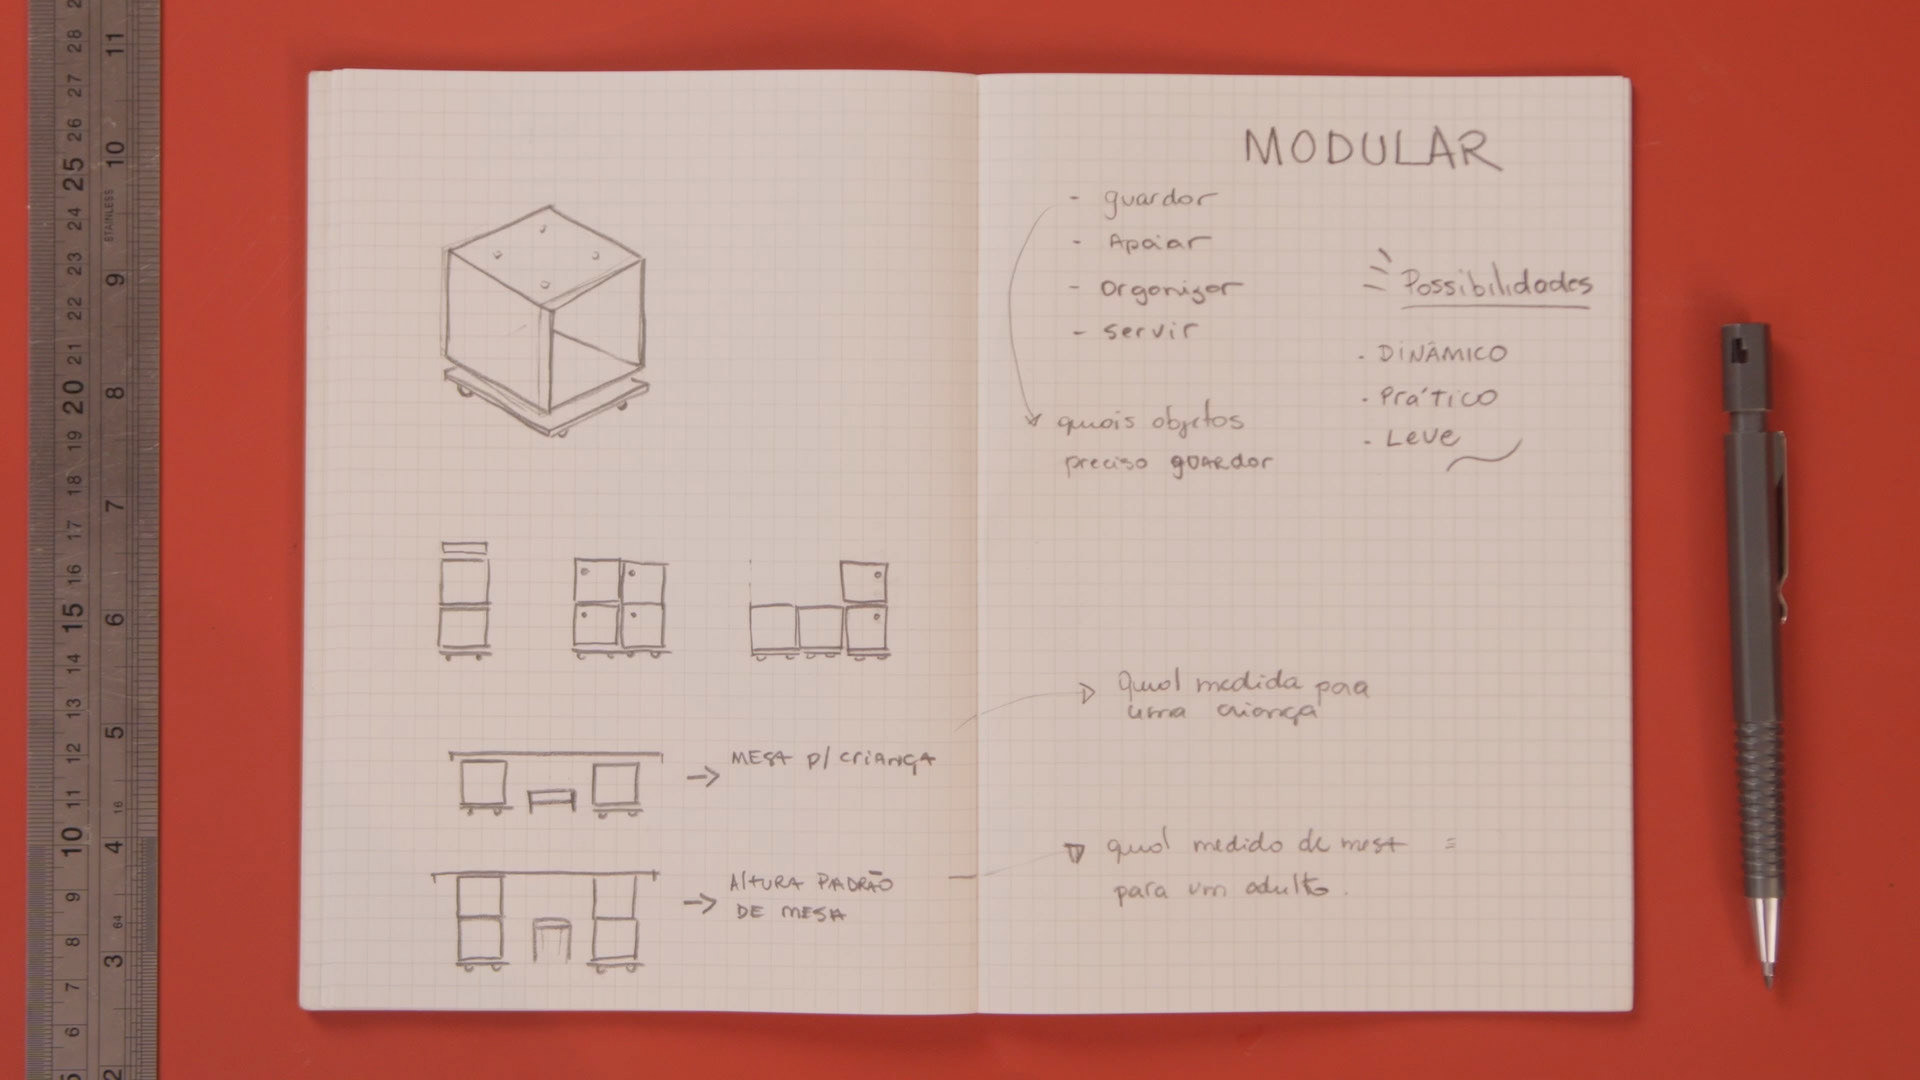 MESA P/ CRIANÇA
ALTURA PADRÃO
DE MESA
MODULAR
- guardar
- Apoiar
- Organizar
- servir
quais objetos
preciso guardar
Possibilidades
. DINÂMICO
. PRÁTICO
. Leve
Qual medida para
uma criança
qual medida de mesa =
para um adulto.
28
27
26
25
24
23
22
21
20
19
18
17
16
15
14
13
12
11
10
9
8
7
6
11
10
STAINLESS
9
8
7
6
5
16
4
64
3
2